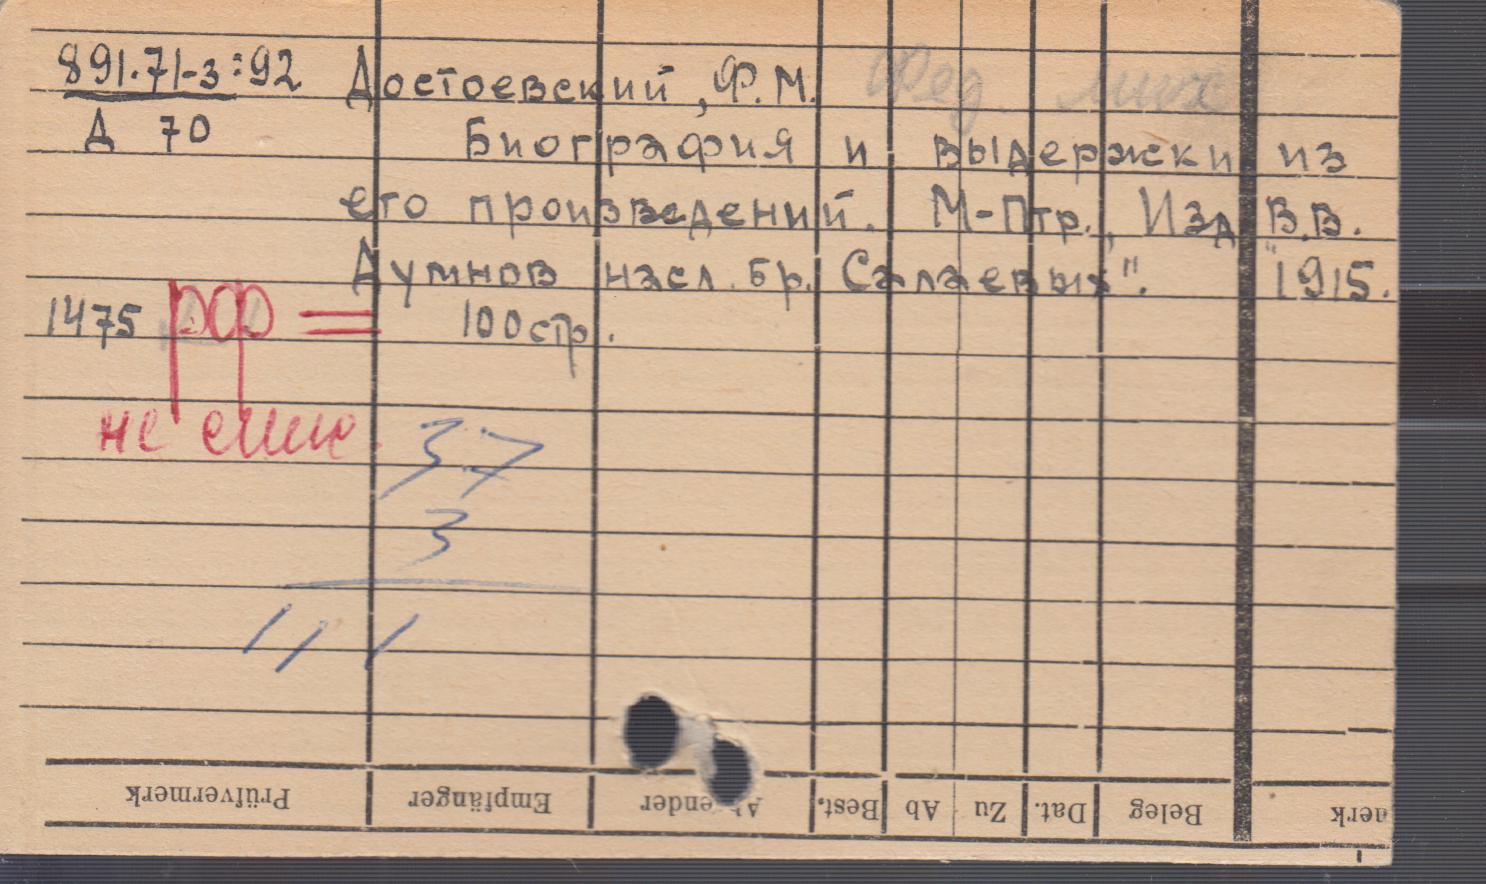 891.71-3:92 Достоевский, Ф.М. Фед. мих
Д 70 Биография и выдержки из
его произведений. М-Птр., Изд. В.В.
Думнов насл. бр. "Салаевых". 1915.
1475 рф = 100 стр.
не
37
3
Prüfvermerk Empfänger Absender Best. Ab Zu Dat. Beleg